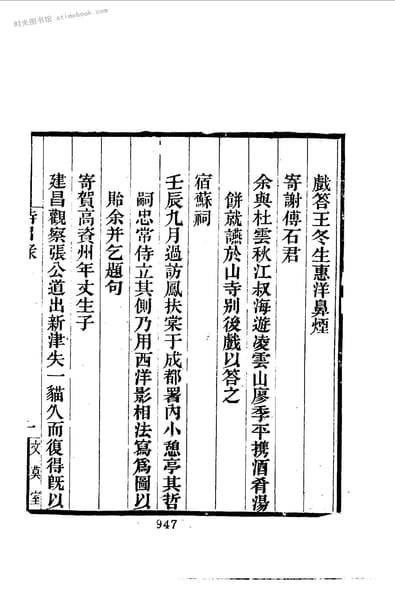 时光图书馆 etimebook.com
戲答王冬生惠洋鼻煙
寄謝傅石君
余與杜雲秋江叔海遊凌雲山廖季平攜酒肴湯
餅就讌於山寺別後戲以答之
宿蘇祠
壬辰九月過訪鳳扶棠于成都署內小憩亭其哲
嗣忠常侍立其側乃用西洋影相法寫爲圖以
貽余并乞題句
寄賀高資州年丈生子
建昌觀察張公道出新津失一貓久而復得旣以
一 文莫室
947